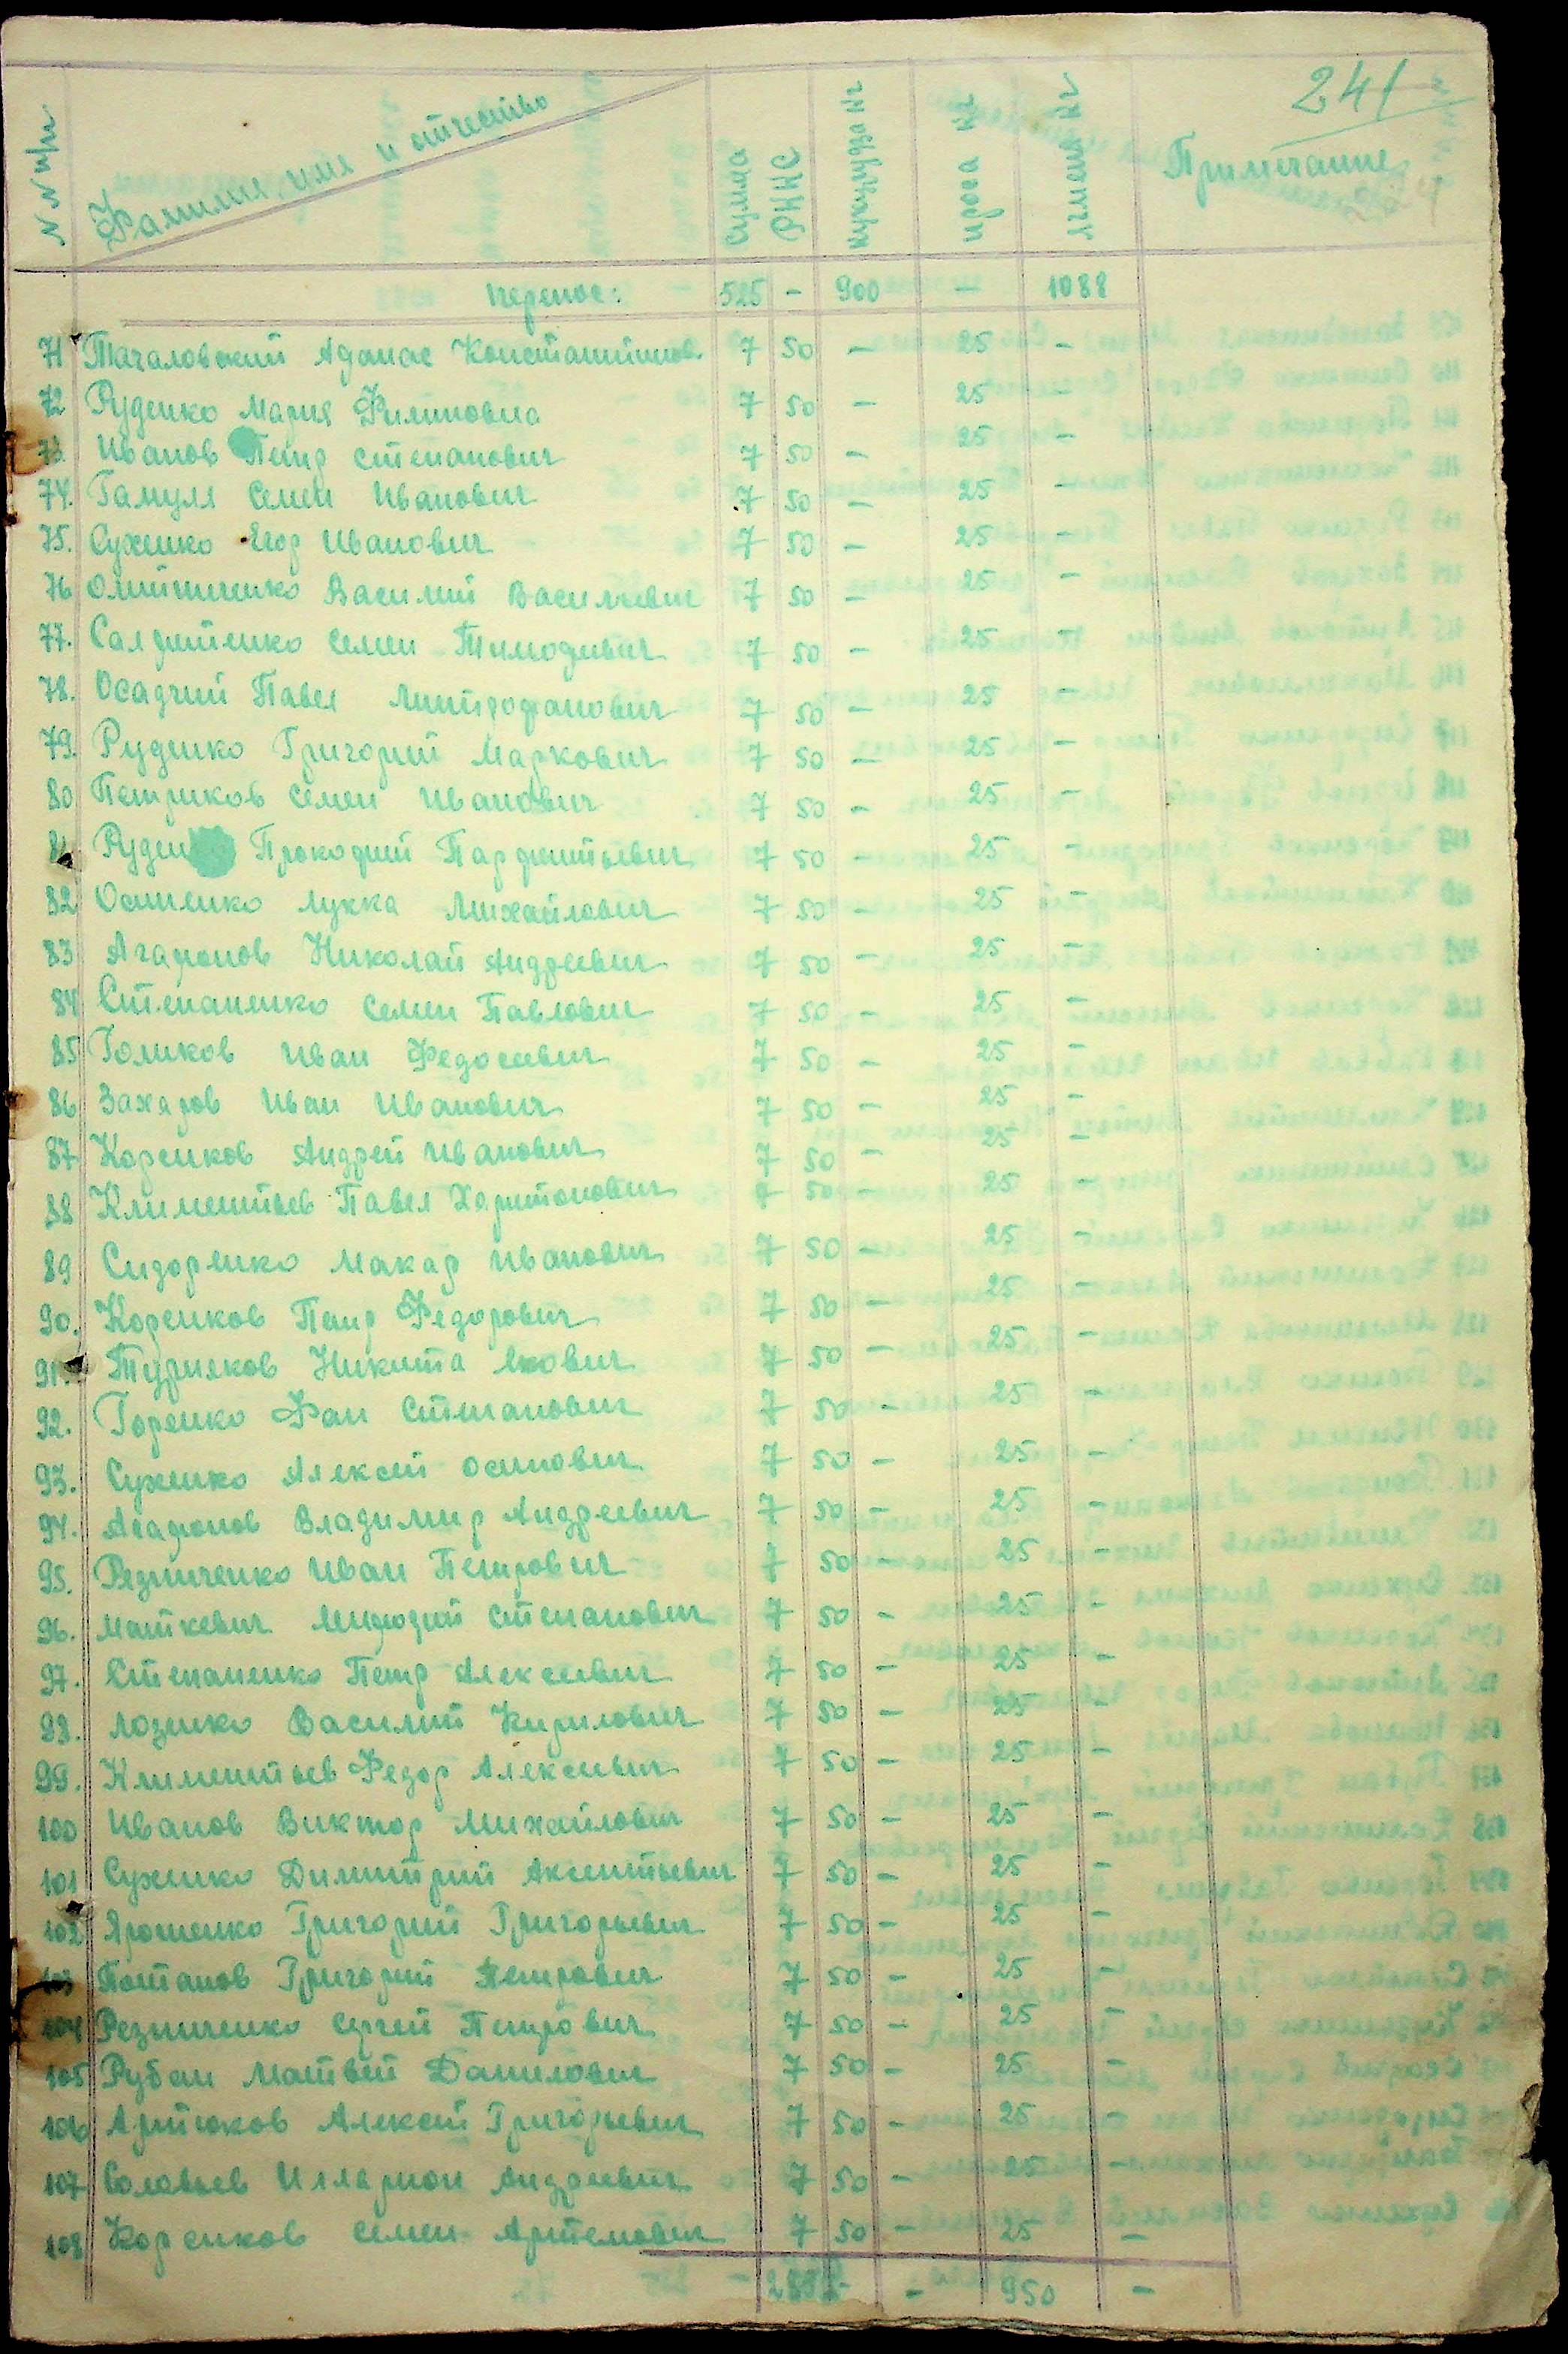 241
N N п/п Фамилия, имя и отчество Сумма РККС кукурудза кг проса кг ячменя кг Примечание
перенос: 525 - 900 - 1088
71 Тачаловский Афанас Константинов. 7 50 - 25 -
72 Руденко Мария Филиповна 7 50 - 25 -
73. Иванов Петр Степанович 7 50 - 25 -
74. Гамуля Семен Иванович 7 50 - 25 -
75. Сухенко Егор Иванович 7 50 - 25 -
76 Олийниченко Василий Васильевич 7 50 - 25 -
77. Семен Тимофивич 7 50 - 25 -
78. Осадчий Павел Митрофанович 7 50 - 25 -
79. Руденко Григорий Маркович 7 50 - 25 -
80 Петриков Семен Иванович 7 50 - 25 -
81 Руден Прокофий Парфентьевич 7 50 - 25 -
82 Осипенко Лукка Михайлович 7 50 - 25 -
83 Агафонов Николай Андреевич 7 50 - 25 -
84 Степаненко Семен Павлович 7 50 - 25 -
85 Голиков Иван Федосеевич 7 50 - 25 -
86 Захаров Иван Иванович 7 50 - 25 -
87 Коренков Андрей Иванович 7 50 - 25 -
88 Климентьев Павел Харитонович 7 50 - 25 -
89 Сидоренко Макар Иванович 7 50 - 25 -
90. Коренков Петр Федорович 7 50 - 25 -
91. Туриков Никита Якович 7 50 - 25 -
92. Горенко Фан Степанович 7 50 - 25 -
93. Сухенко Алексей Осипович 7 50 - 25 -
94. Агафонов Владимир Андреевич 7 50 - 25 -
95. Резниченко Иван Петрович 7 50 - 25 -
96. Маткевич Мифодий Степанович 7 50 - 25 -
97. Степаненко Петр Алексеевич 7 50 - 25 -
98. Лозенко Василий Кирилович 7 50 - 25 -
99. Климентьев Федор Алексеевич 7 50 - 25 -
100 Иванов Виктор Михайлович 7 50 - 25 -
101 Сухенко Димитрий Аксентьевич 7 50 - 25 -
102 Ярошенко Григорий Григорьевич 7 50 - 25 -
103 Потапов Григорий Петрович 7 50 - 25 -
104 Резниченко Сергей Петрович 7 50 - 25 -
105 Рубан Матвей Данилович 7 50 - 25 -
106 Артюков Алексей Григорьевич 7 50 - 25 -
107 Соловьев Илларион Андреевич 7 50 - 25 -
108 Коренков Семен Артемович 7 50 - 25 -
285 - - 950 -